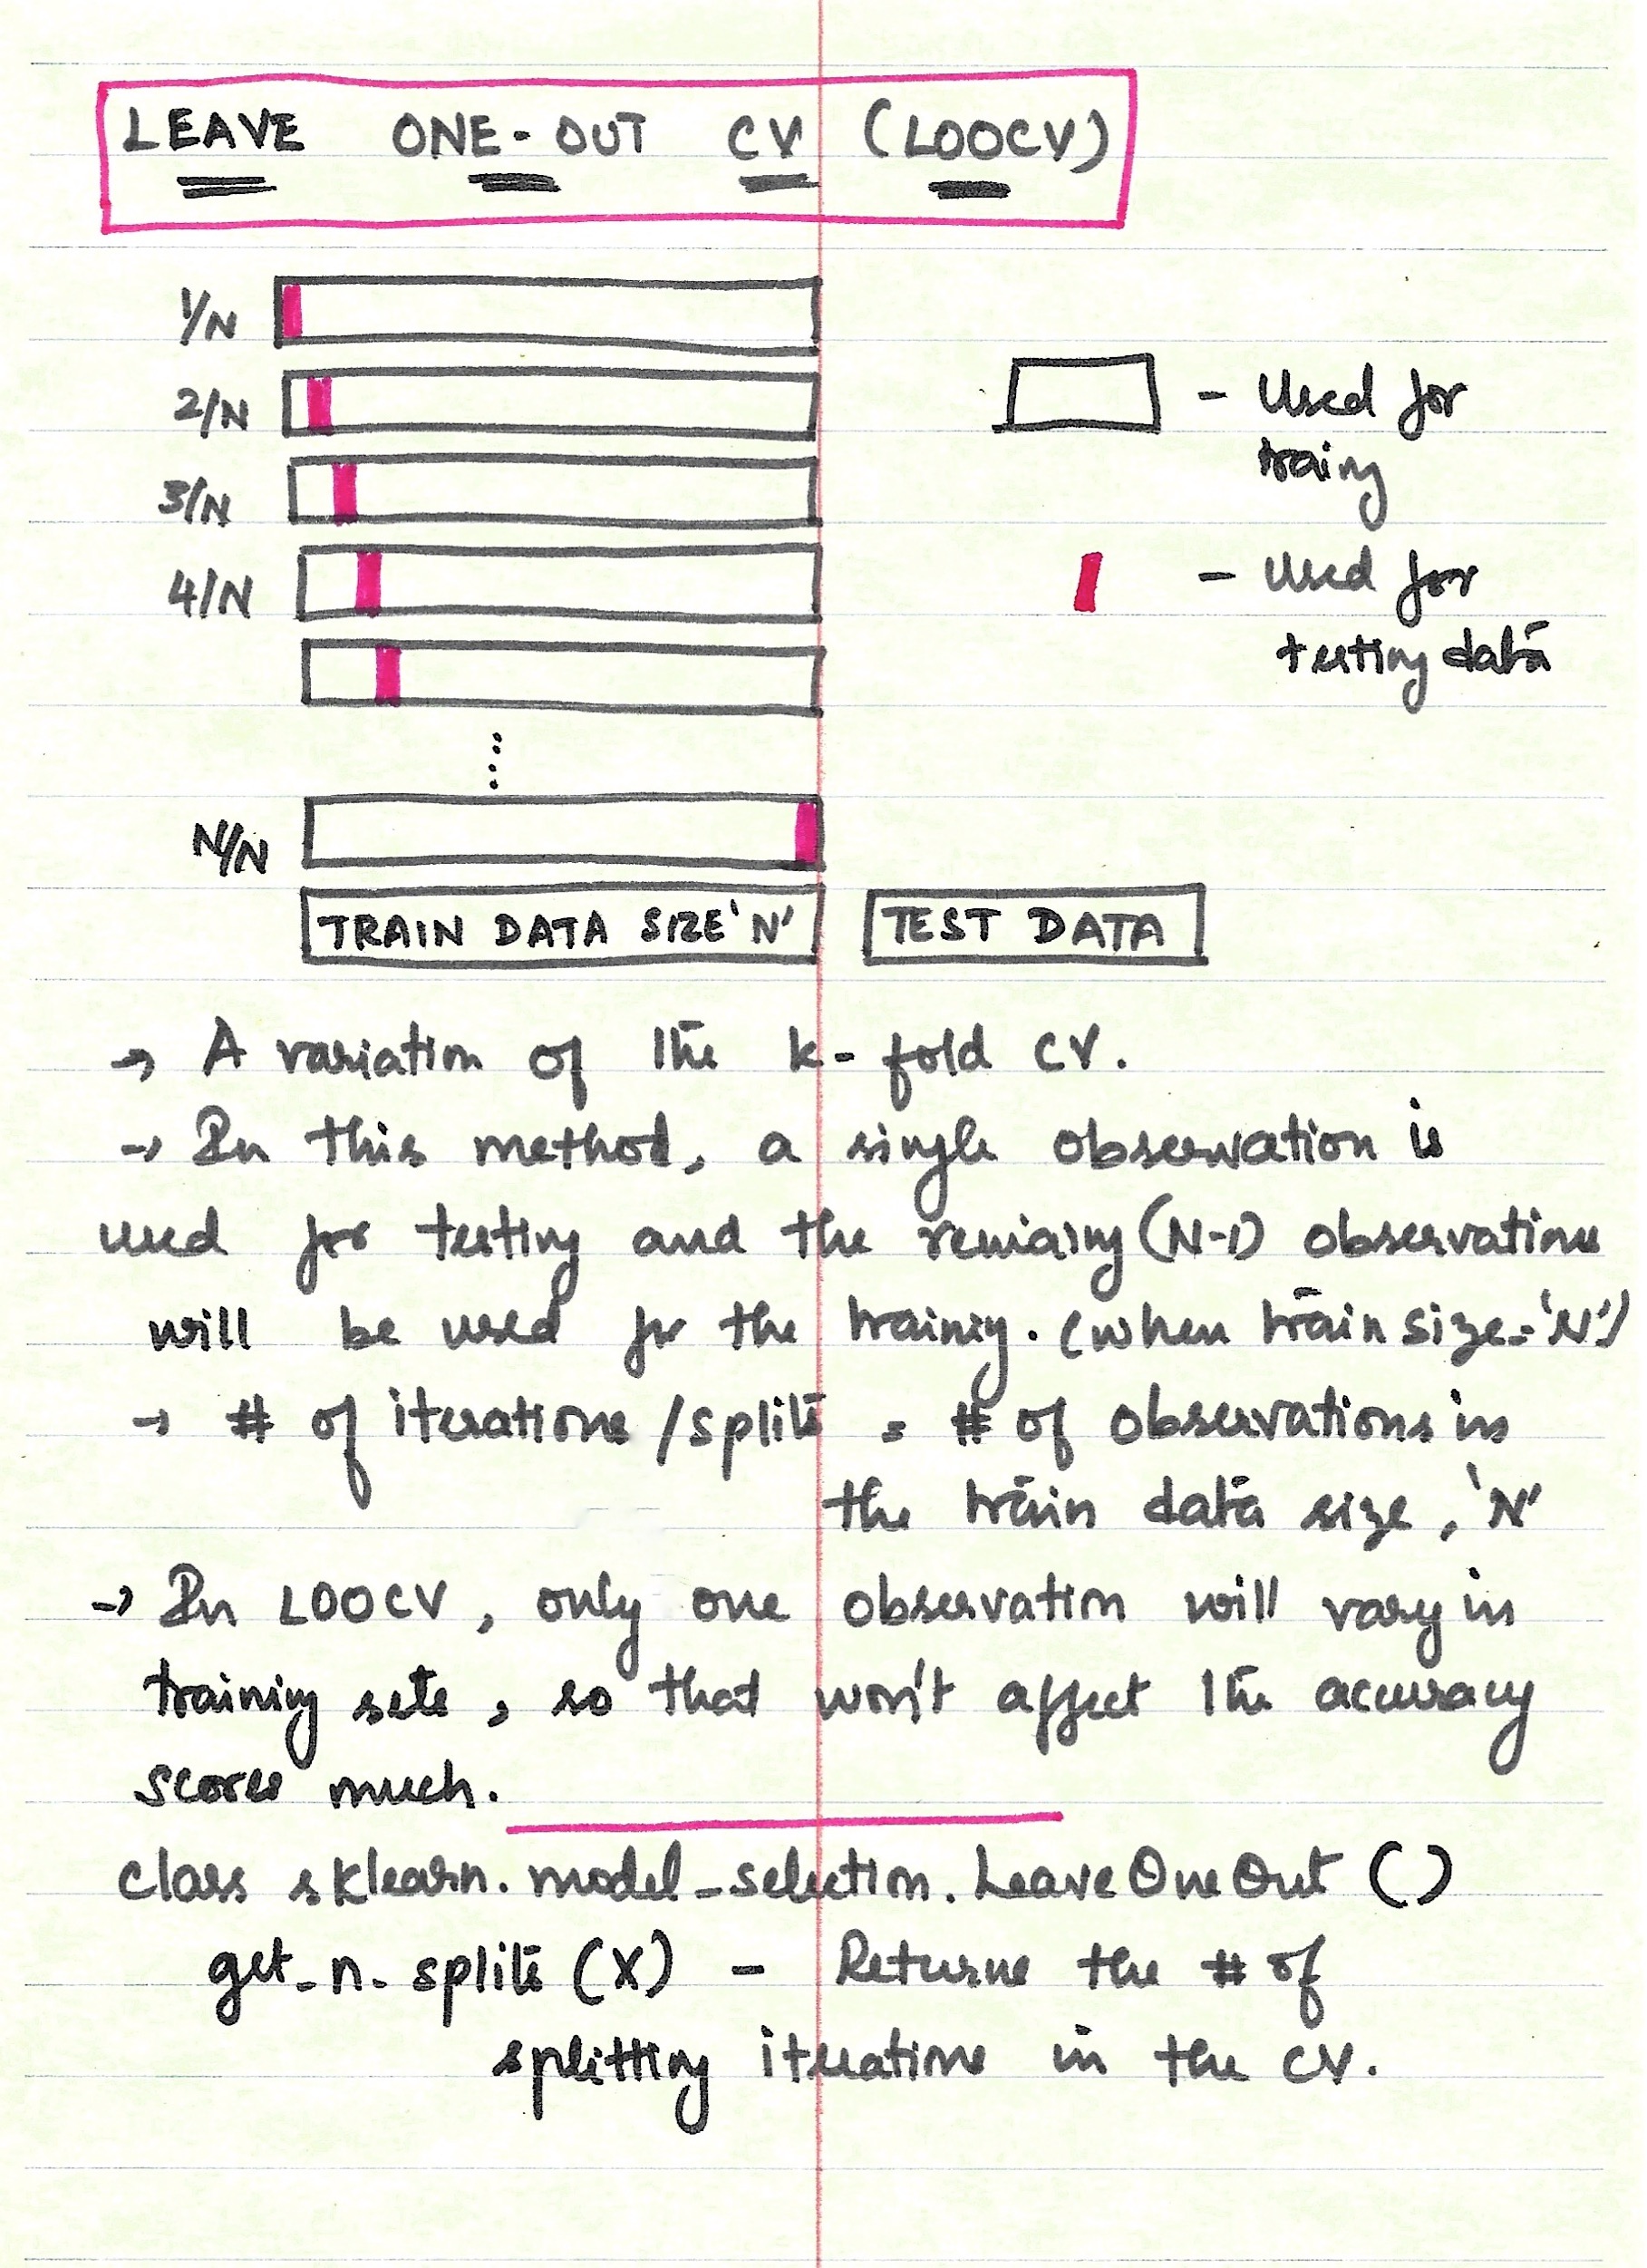 LEAVE ONE-OUT CV (LOOCV)
1/N
2/N
3/N
4/N
N/N
- Used for
training
- Used for
testing data
TRAIN DATA SIZE 'N' TEST DATA
→ A variation of the k-fold CV.
→ In this method, a single observation is
used for testing and the remaing (N-1) observations
will be used for the training. (when train size = 'N')
→ # of iterations / splits = # of observations in
the train data size, 'N'
→ In LOOCV, only one observation will vary in
training sets, so that won't affect the accuracy
scores much.
class sklearn.model_selection.LeaveOneOut ()
get_n_splits (X) - Returns the # of
splitting iterations in the CV.